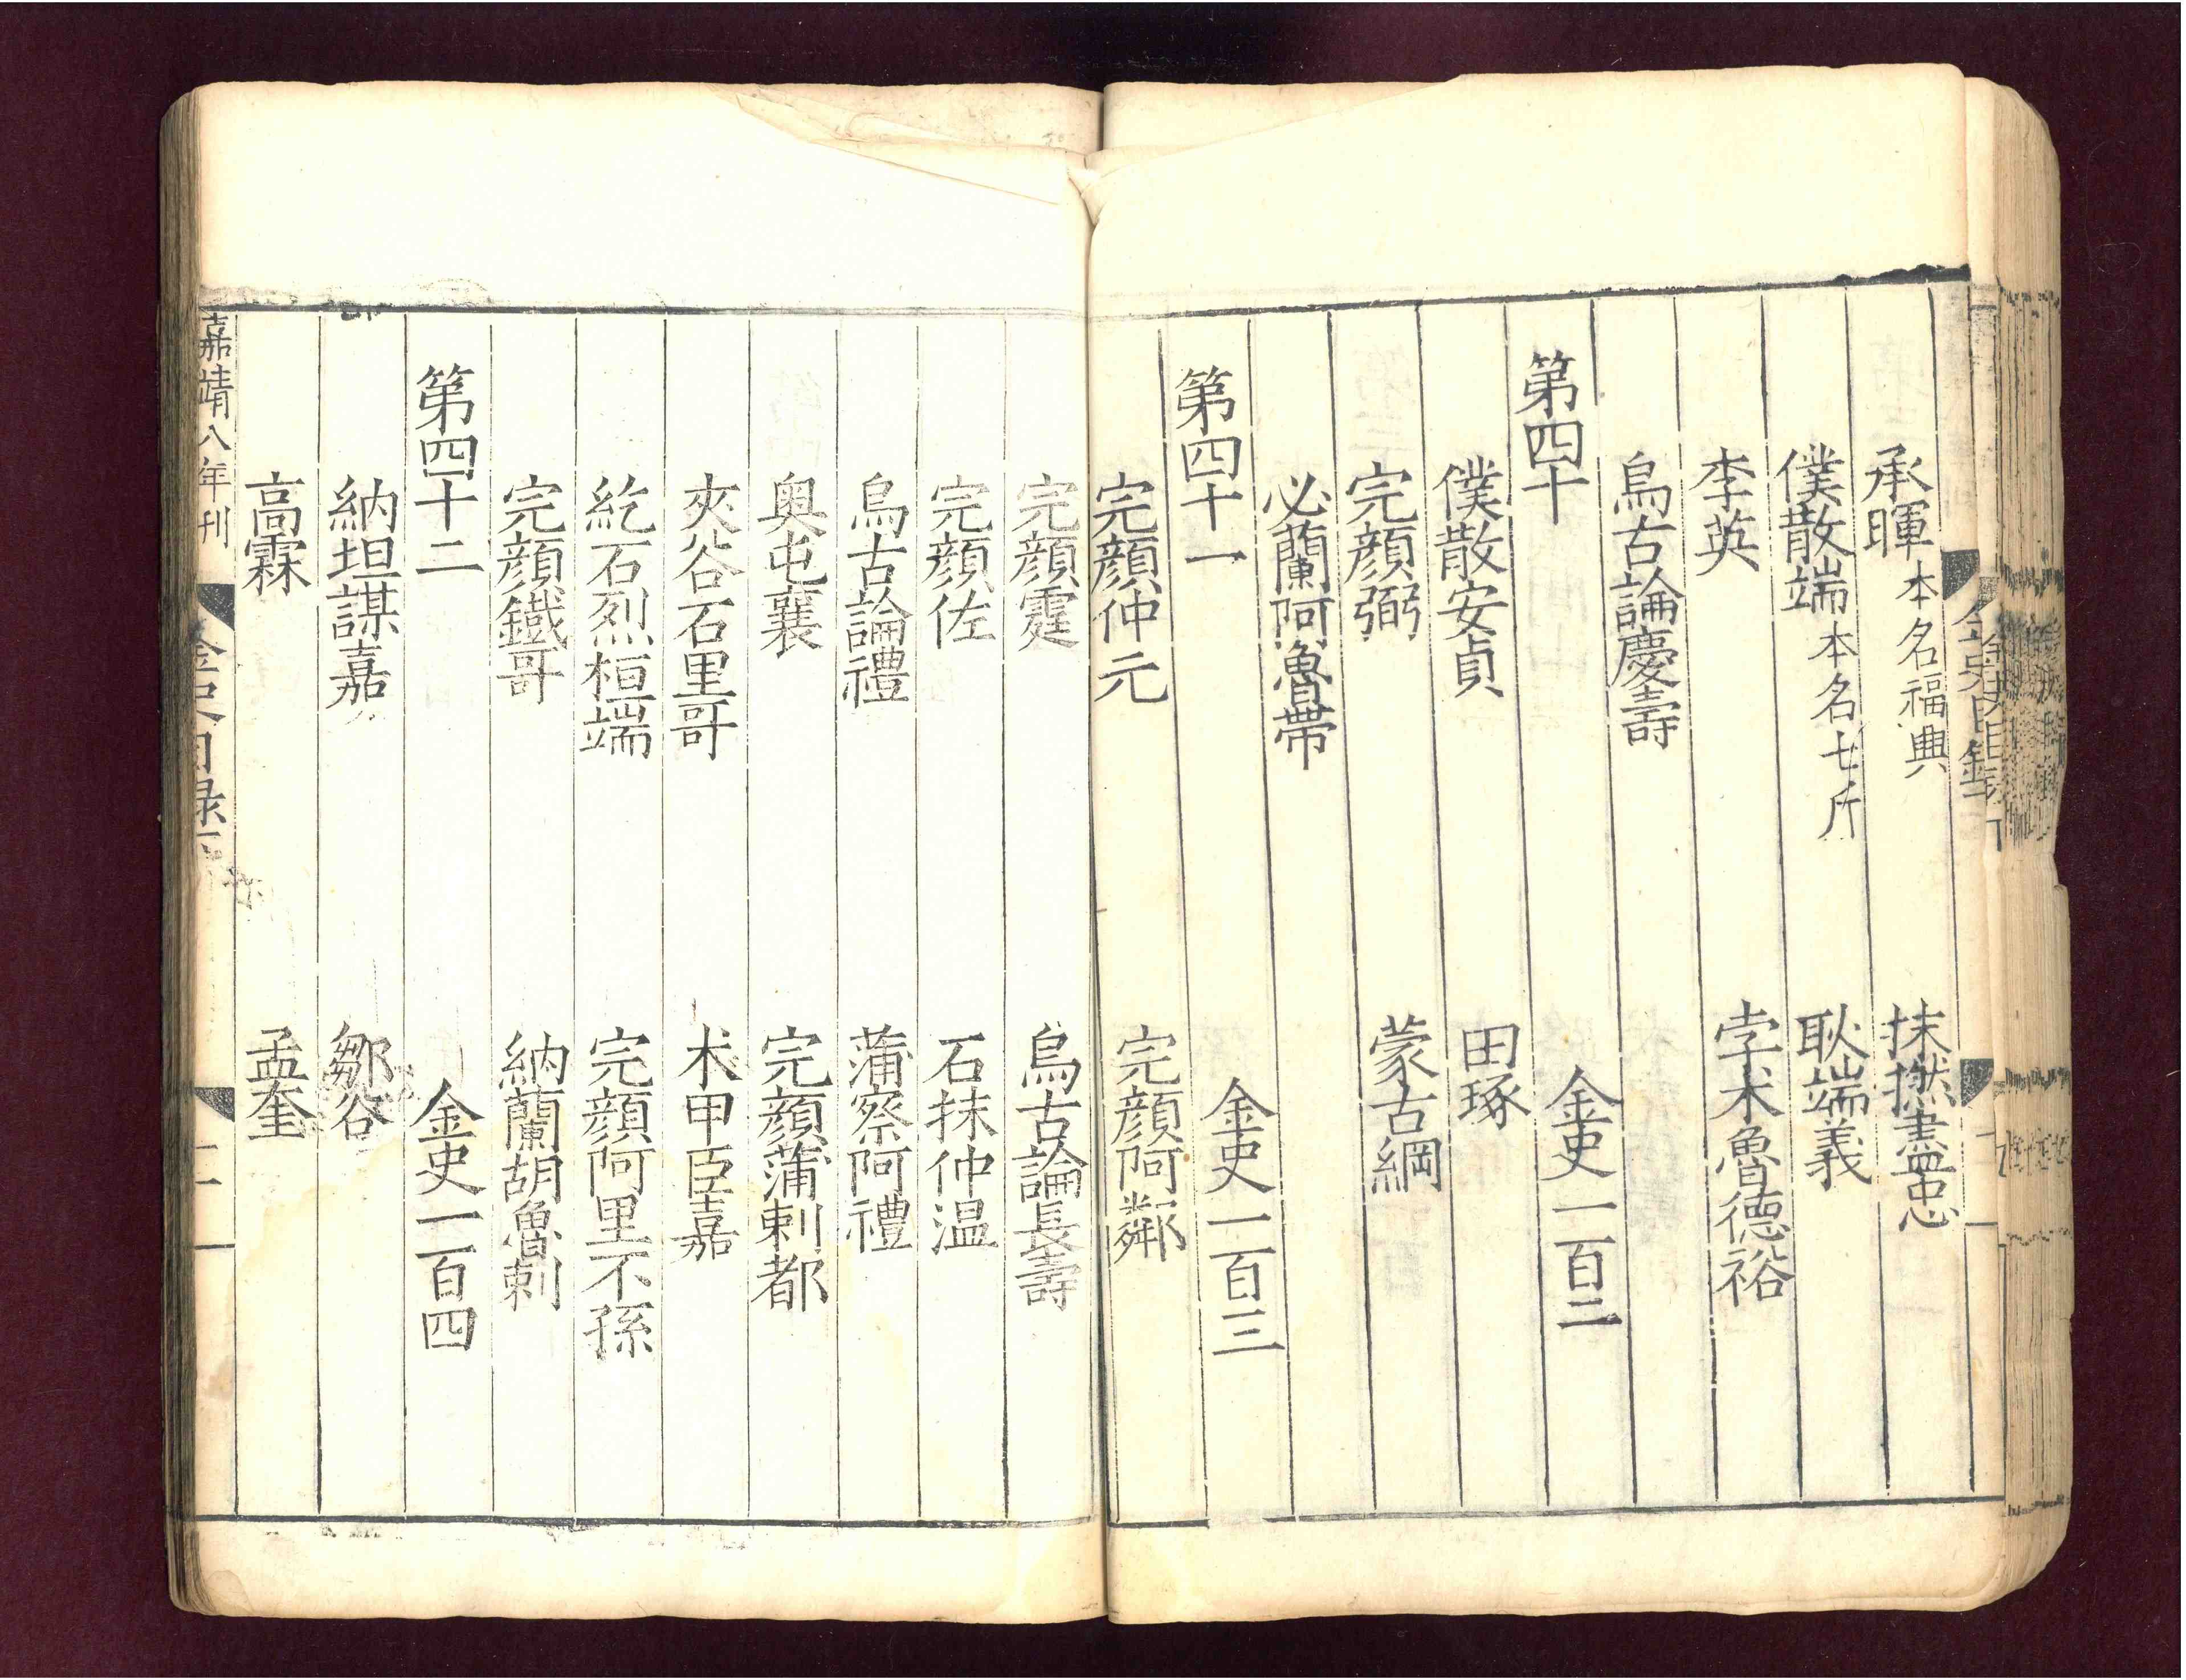 承暉 本名福興 抹撚盡忠
僕散端 本名七斤 耿端義
李英 孛术魯德裕
烏古論慶壽
第四十 金史一百二
僕散安貞 田琢
完顏弼 蒙古綱
必蘭阿魯帶
第四十一 金史一百三
完顏仲元 完顏阿鄰
完顏霆 烏古論長壽
完顏佐 石抹仲温
烏古論禮 蒲察阿禮
奥屯襄 完顏蒲剌都
夾谷石里哥 术甲臣嘉
紇石烈桓端 完顏阿里不孫
完顏鐵哥 納蘭胡魯剌
第四十二 金史一百四
納坦謀嘉 鄒谷
高霖 孟奎
嘉靖八年刊 金史目録下